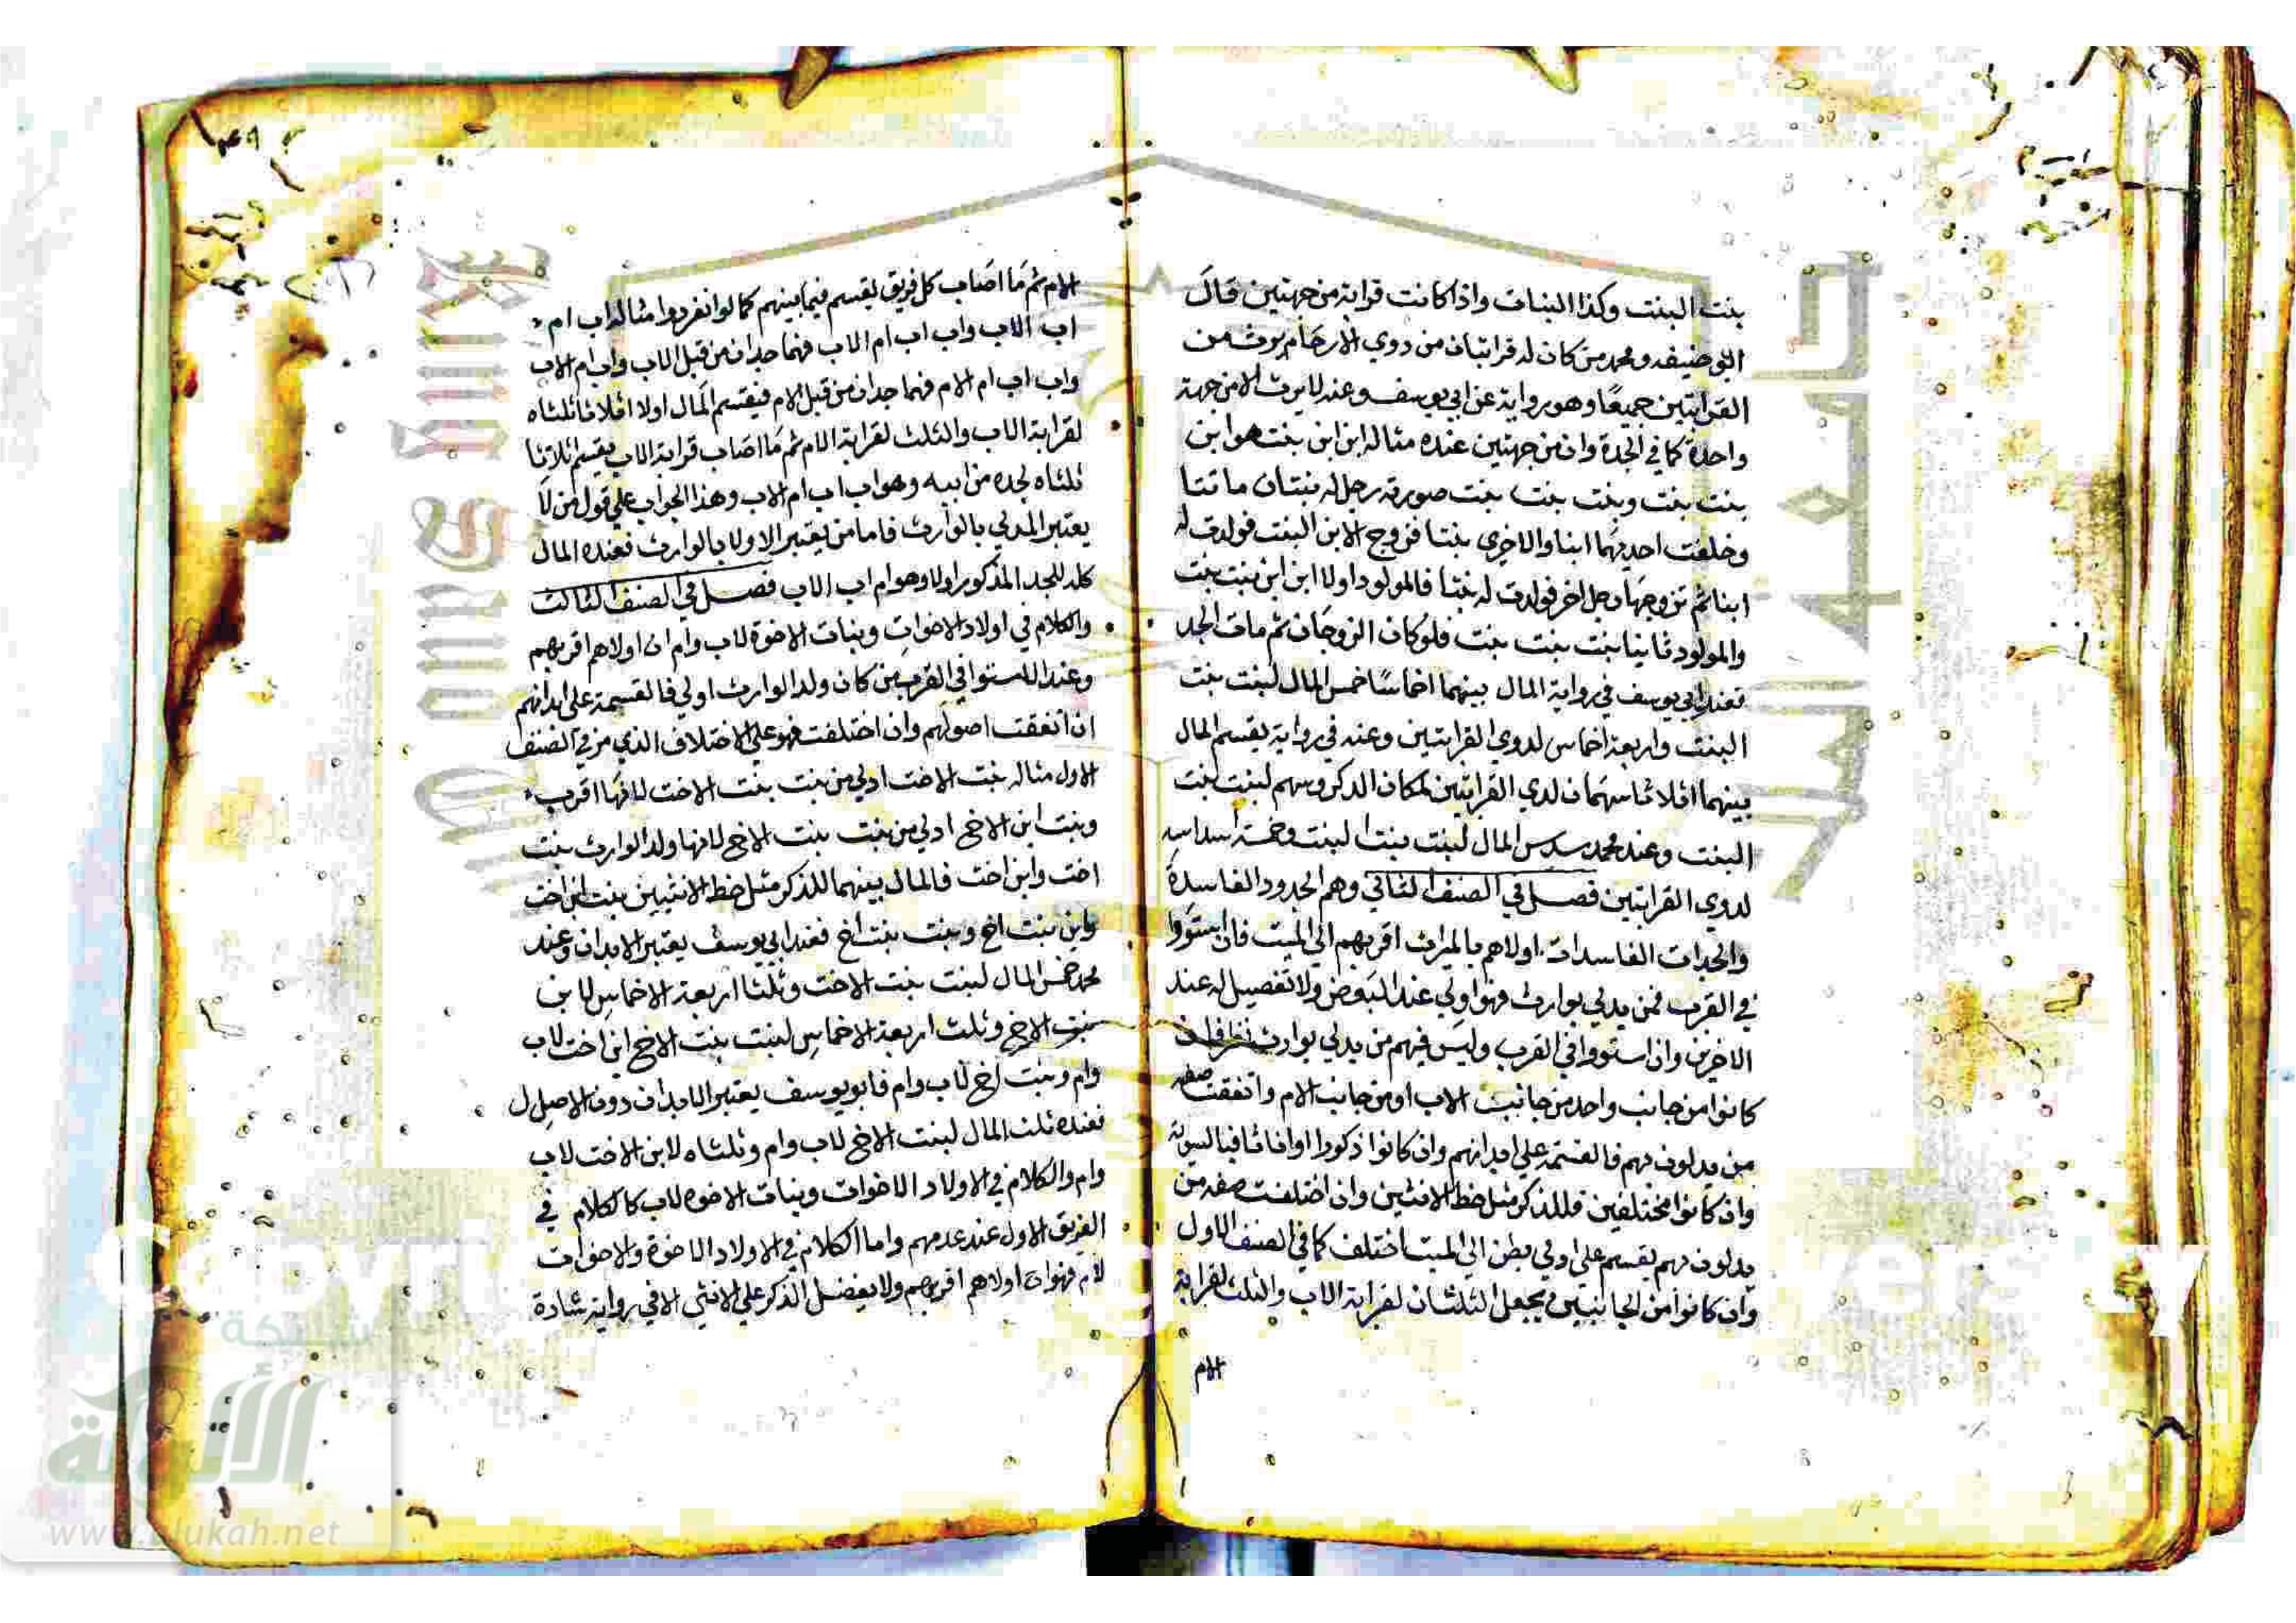 بنت البنت وكذا البنات واذا كانت قرابة من جهتين قال
ابو حنيفه ومحمد من كان له قرابتان من ذوي الارحام يورث من
القرابتين جميعا وهو رواية عن ابي يوسف وعنه لا يرث الا من جهة
واحدة كما في الجدة وان من جهتين عنده مثاله ابن ابن بنت هو ابن
بنت بنت وبنت بنت بنت صورته رجل له بنتان ماتتا
وخلفت احديهما ابنا والاخرى بنتا فزوج الابن البنت فولدت له
ابنا ثم تزوجها رجل اخر فولدت له بنتا فالمولود اولا ابن ابن بنت بنت
والمولود ثانيا بنت بنت بنت فلو كان الزوجان ثم مات الجد
فعند ابي يوسف في رواية المال بينهما اخماسا خمس المال لبنت بنت
البنت واربعة اخماس لذوي القرابتين وعنه في رواية يقسم المال
بينهما اثلاثا سهمان لذي القرابتين لمكان الذكر وسهم لبنت بنت
البنت وعند محمد سدس المال لبنت بنت البنت وخمسة اسداسه
لذوي القرابتين فصل في الصنف الثاني وهم الجدود الفاسدة
والجدات الفاسدات اولاهم بالميراث اقربهم الى الميت فان استووا
في القرب فمن يدلي بوارث فهو اولي عند البعض ولا تفضيل له عند
الاخرين وان استووا في القرب وليس فيهم من يدلي بوارث نظر فان
كانوا من جانب واحد من جانب الاب او من جانب الام واتفقت صفة
من يدلون بهم فالقسمة علي ابدانهم وان كانوا ذكورا او اناثا فبالسوية
وان كانوا مختلفين فللذكر مثل حظ الانثيين وان اختلفت صفة من
يدلون بهم يقسم على ادلي بطن الى الميت اختلف كما في الصنف الاول
وان كانوا من الجانبين يجعل الثلثان لقرابة الاب والثلث لقرابة
الام
الام ثم ما اصاب كل فريق يقسم فيما بينهم كما لو انفردوا مثاله اب ام
اب الاب واب اب ام الاب فهما جدان من قبل الاب واب ام الاب
واب اب ام الام فهما جدان من قبل الام فيقسم المال اولا اثلاثا ثلثاه
لقرابة الاب والثلث لقرابة الام ثم ما اصاب قرابة الاب يقسم اثلاثا
ثلثاه لجده من ابيه وهو اب اب ام الاب وهذا الجواب علي قول من لا
يعتبر المدلي بالوارث فاما من يعتبر الاولا بالوارث فعنده المال
كله للجد المذكور اولا وهو ام اب الاب فصل في الصنف الثالث
والكلام في اولاد الاخوات وبنات الاخوة لاب وام ان اولاهم اقربهم
وعند الاستوا في القرب من كان ولد الوارث اولي فالقسمة على ابدانهم
ان اتفقت اصولهم وان اختلفت فهو علي الاختلاف الذي مر في الصنف
الاول مثاله بنت الاخت اولي من بنت بنت الاخت لانها اقرب
وبنت ابن الاخ اولي من بنت بنت الاخ لانها ولد الوارث بنت
اخت وابن اخت فالمال بينهما للذكر مثل حظ الانثيين بنت ابن اخت
وابن بنت اخ وبنت بنت اخ فعند ابي يوسف يعتبر الابدان وعند
محمد خمس المال لبنت بنت الاخت وثلثا اربعة الاخماس لابن
بنت الاخ وثلث اربعة الاخماس لبنت بنت الاخ ابن اخت لاب
وام وبنت اخ لاب وام فابو يوسف يعتبر الابدان دون الاصل ل
فعنده ثلث المال لبنت الاخ لاب وام وثلثاه لابن الاخت لاب
وام والكلام في الاولاد الاخوات وبنات الاخوه لاب كالكلام في
الفريق الاول عند عدمهم واما الكلام في الاولاد الاخوة والاخوات
لام فهو ان اولاهم اقربهم ولا يفضل الذكر علي الانثي الا في رواية شادة
شبكة
الألوكة
www.alukah.net